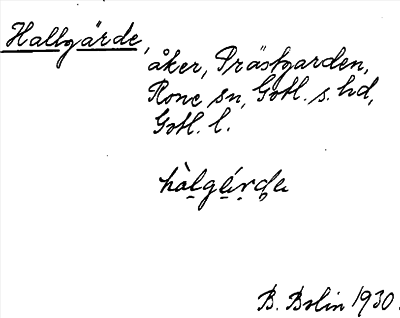 Hallgärde,
åker, Prästgarden,
Rone sn, Gotl. s. hd,
Gotl. l.
hàlgǽrdɐ
B. Bolin 1930.